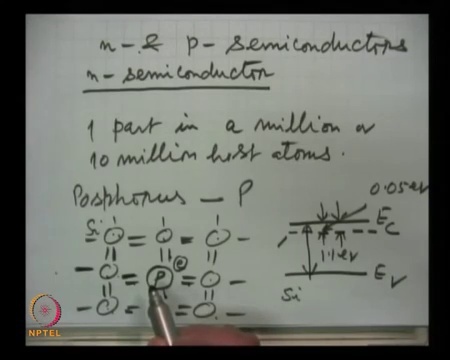 n- & p- semiconductors
n- semiconductor
1 part in a million or
10 million host atoms.
Posphorus - P
0.05 eV
Si
e
Ec
P
1.1 eV
Si
Ev
NPTEL